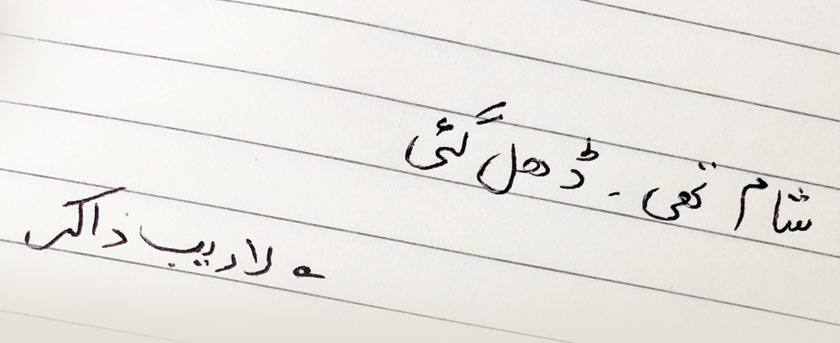 شام تھی ۔ ڈھل گئی
؎ لاریب ذاکر